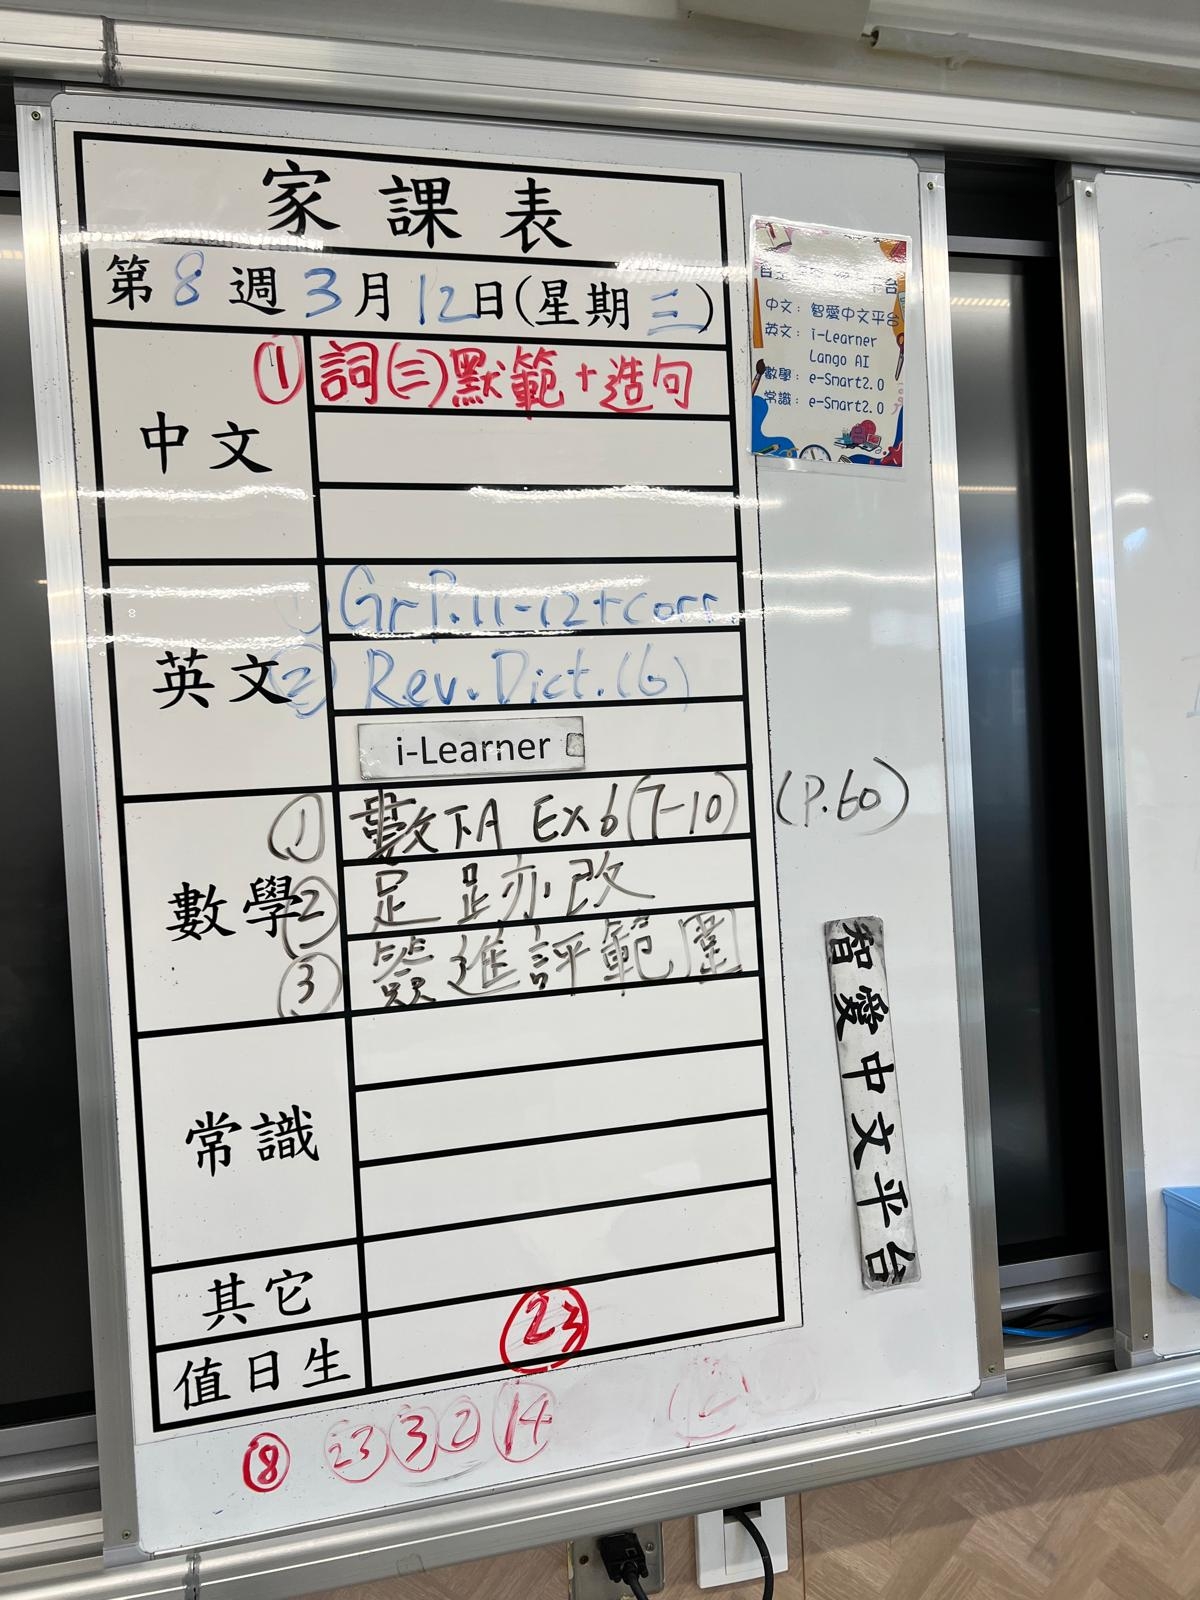 家課表
第8週3月12日(星期三)
中文
① 詞(三)默範+造句
英文
① Gr P.11-12+corr.
② Rev. Dict.(6)
i-Learner
數學
① 數下A Ex6(7-10) (P.60)
② 足跡改
③ 簽進評範圍
常識
其它
值日生
23
8 23 3 2 14
中文：智愛中文平台
英文：i-Learner
Lango AI
數學：e-Smart2.0
常識：e-Smart2.0
智愛中文平台